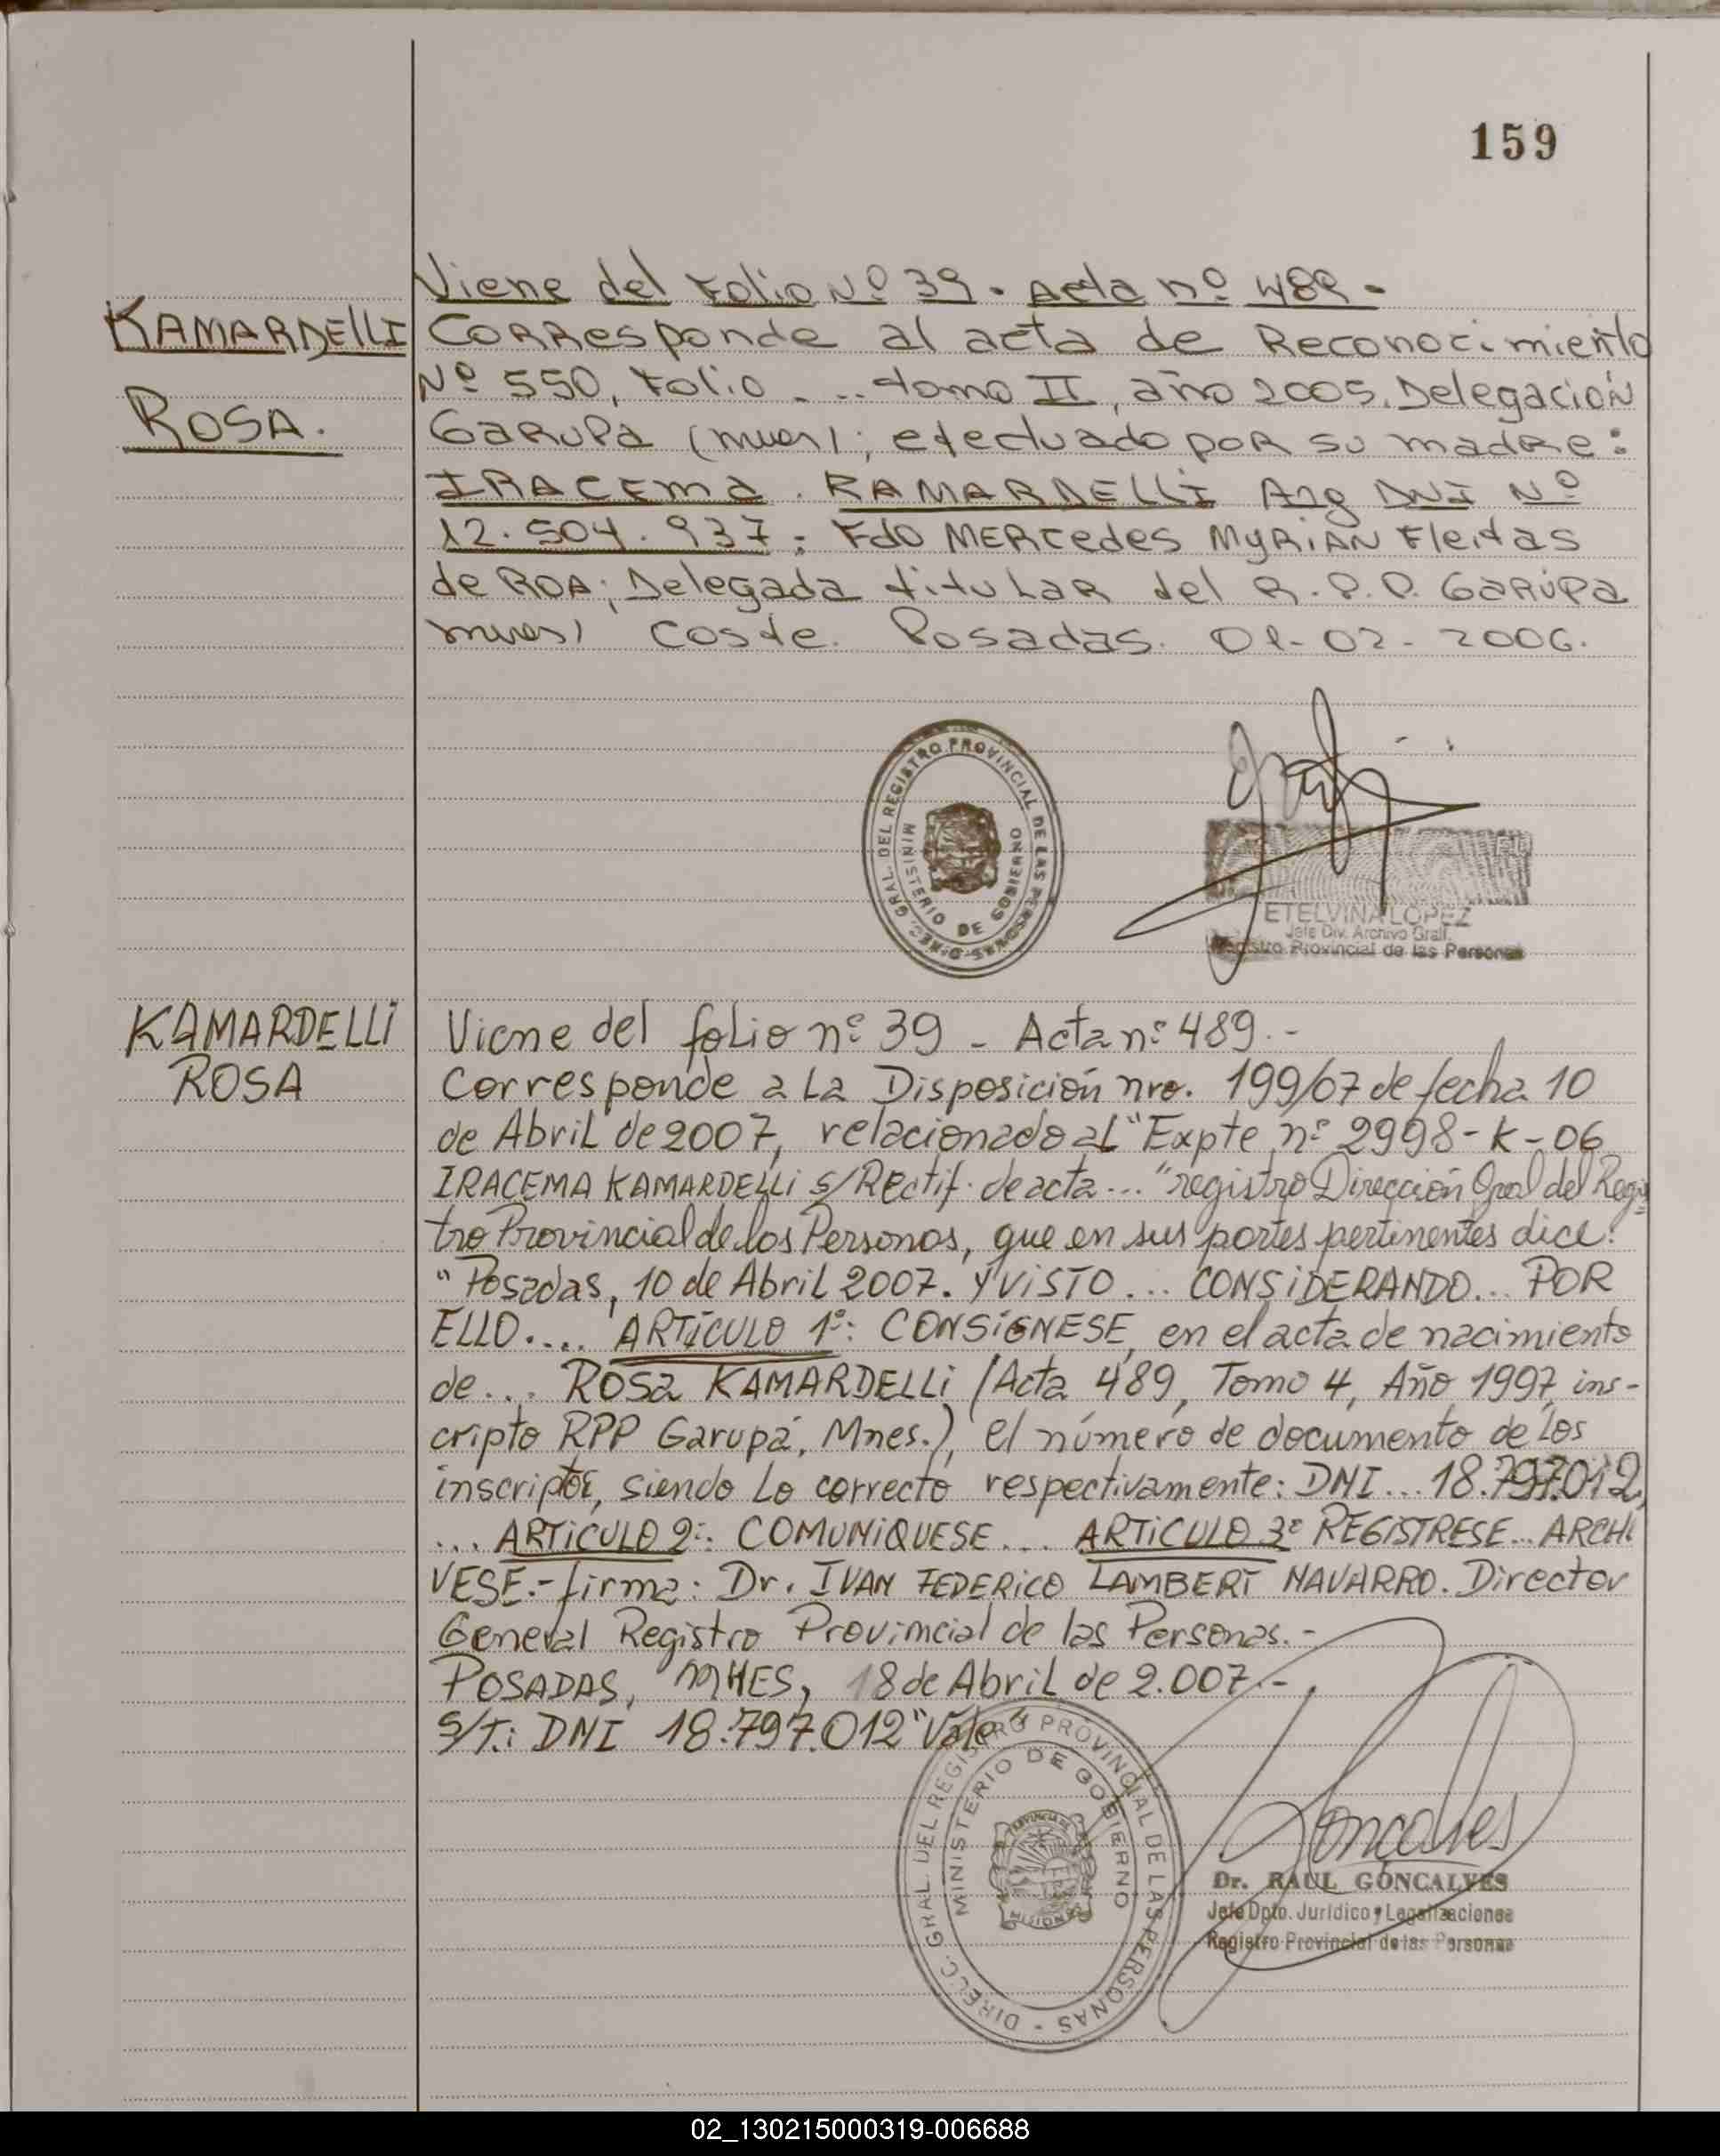 159
Viene del Folio Nº 39. Acta nº 489.
KAMARDELLI
ROSA.
Corresponde al acta de Reconocimiento
Nº 550, Folio ... tomo II, año 2005. Delegación
Garupa ; efectuado por su madre:
IRACEMA KAMARDELLI Arg DNI Nº
12.504.937. Fdo MERCedes MYRiAN Fleitas
de ROA; Delegada titular del R.P.P. Garúpa
Coste. Posadas. 01-02-2006.
DIREC. GRAL. DEL REGISTRO PROVINCIAL DE LAS PERSONAS
MINISTERIO DE GOBIERNO
ETELVINA LOPEZ
Jefe Div. Archivo Gral.
Registro Provincial de las Personas
KAMARDELLi
ROSA
Viene del folio nº 39 - Acta nº 489.-
Corresponde a La Disposición nro. 199/07 de fecha 10
de Abril de 2007, relacionado al "Expte nº 2998-K-06
IRACEMA KAMARDELLi s/Rectif. de acta... "registro Dirección Gral del Regis
tro Provincial de las Personas, que en sus partes pertinentes dice:
"Posadas, 10 de Abril 2007. Y ViSTO... CONSiDERANDO... POR
ELLO.... ARTÍCULO 1º: CONSiGNESE, en el acta de nacimiento
de... ROSa KAMARDELLi (Acta 489, Tomo 4, Año 1997, ins-
cripto RPP Garupá, Mnes.), el número de documento de los
inscriptos, siendo Lo correcto respectivamente: DNI... 18.797.012,
... ARTiCULO 2º: COMUNiQUESE... ARTiCULO 3º REGISTRESE... ARCHi
VESE.- firma: Dr. IVAN FEDERiCO LAMBERT NAVARRO. Director
General Registro Provincial de las Personas.-
POSADAS, MNES, 18 de Abril de 2.007.-
S/T: DNI 18.797.012 "Vale"
DIRECC. GRAL. DEL REGISTRO PROVINCIAL DE LAS PERSONAS -
MINISTERIO DE GOBIERNO
PROVINCIA DE
MISIONES
Goncalves
Dr. RAUL GONCALVES
Jefe Dpto. Jurídico y Legalizaciones
Registro Provincial de las Personas
02_130215000319-006688